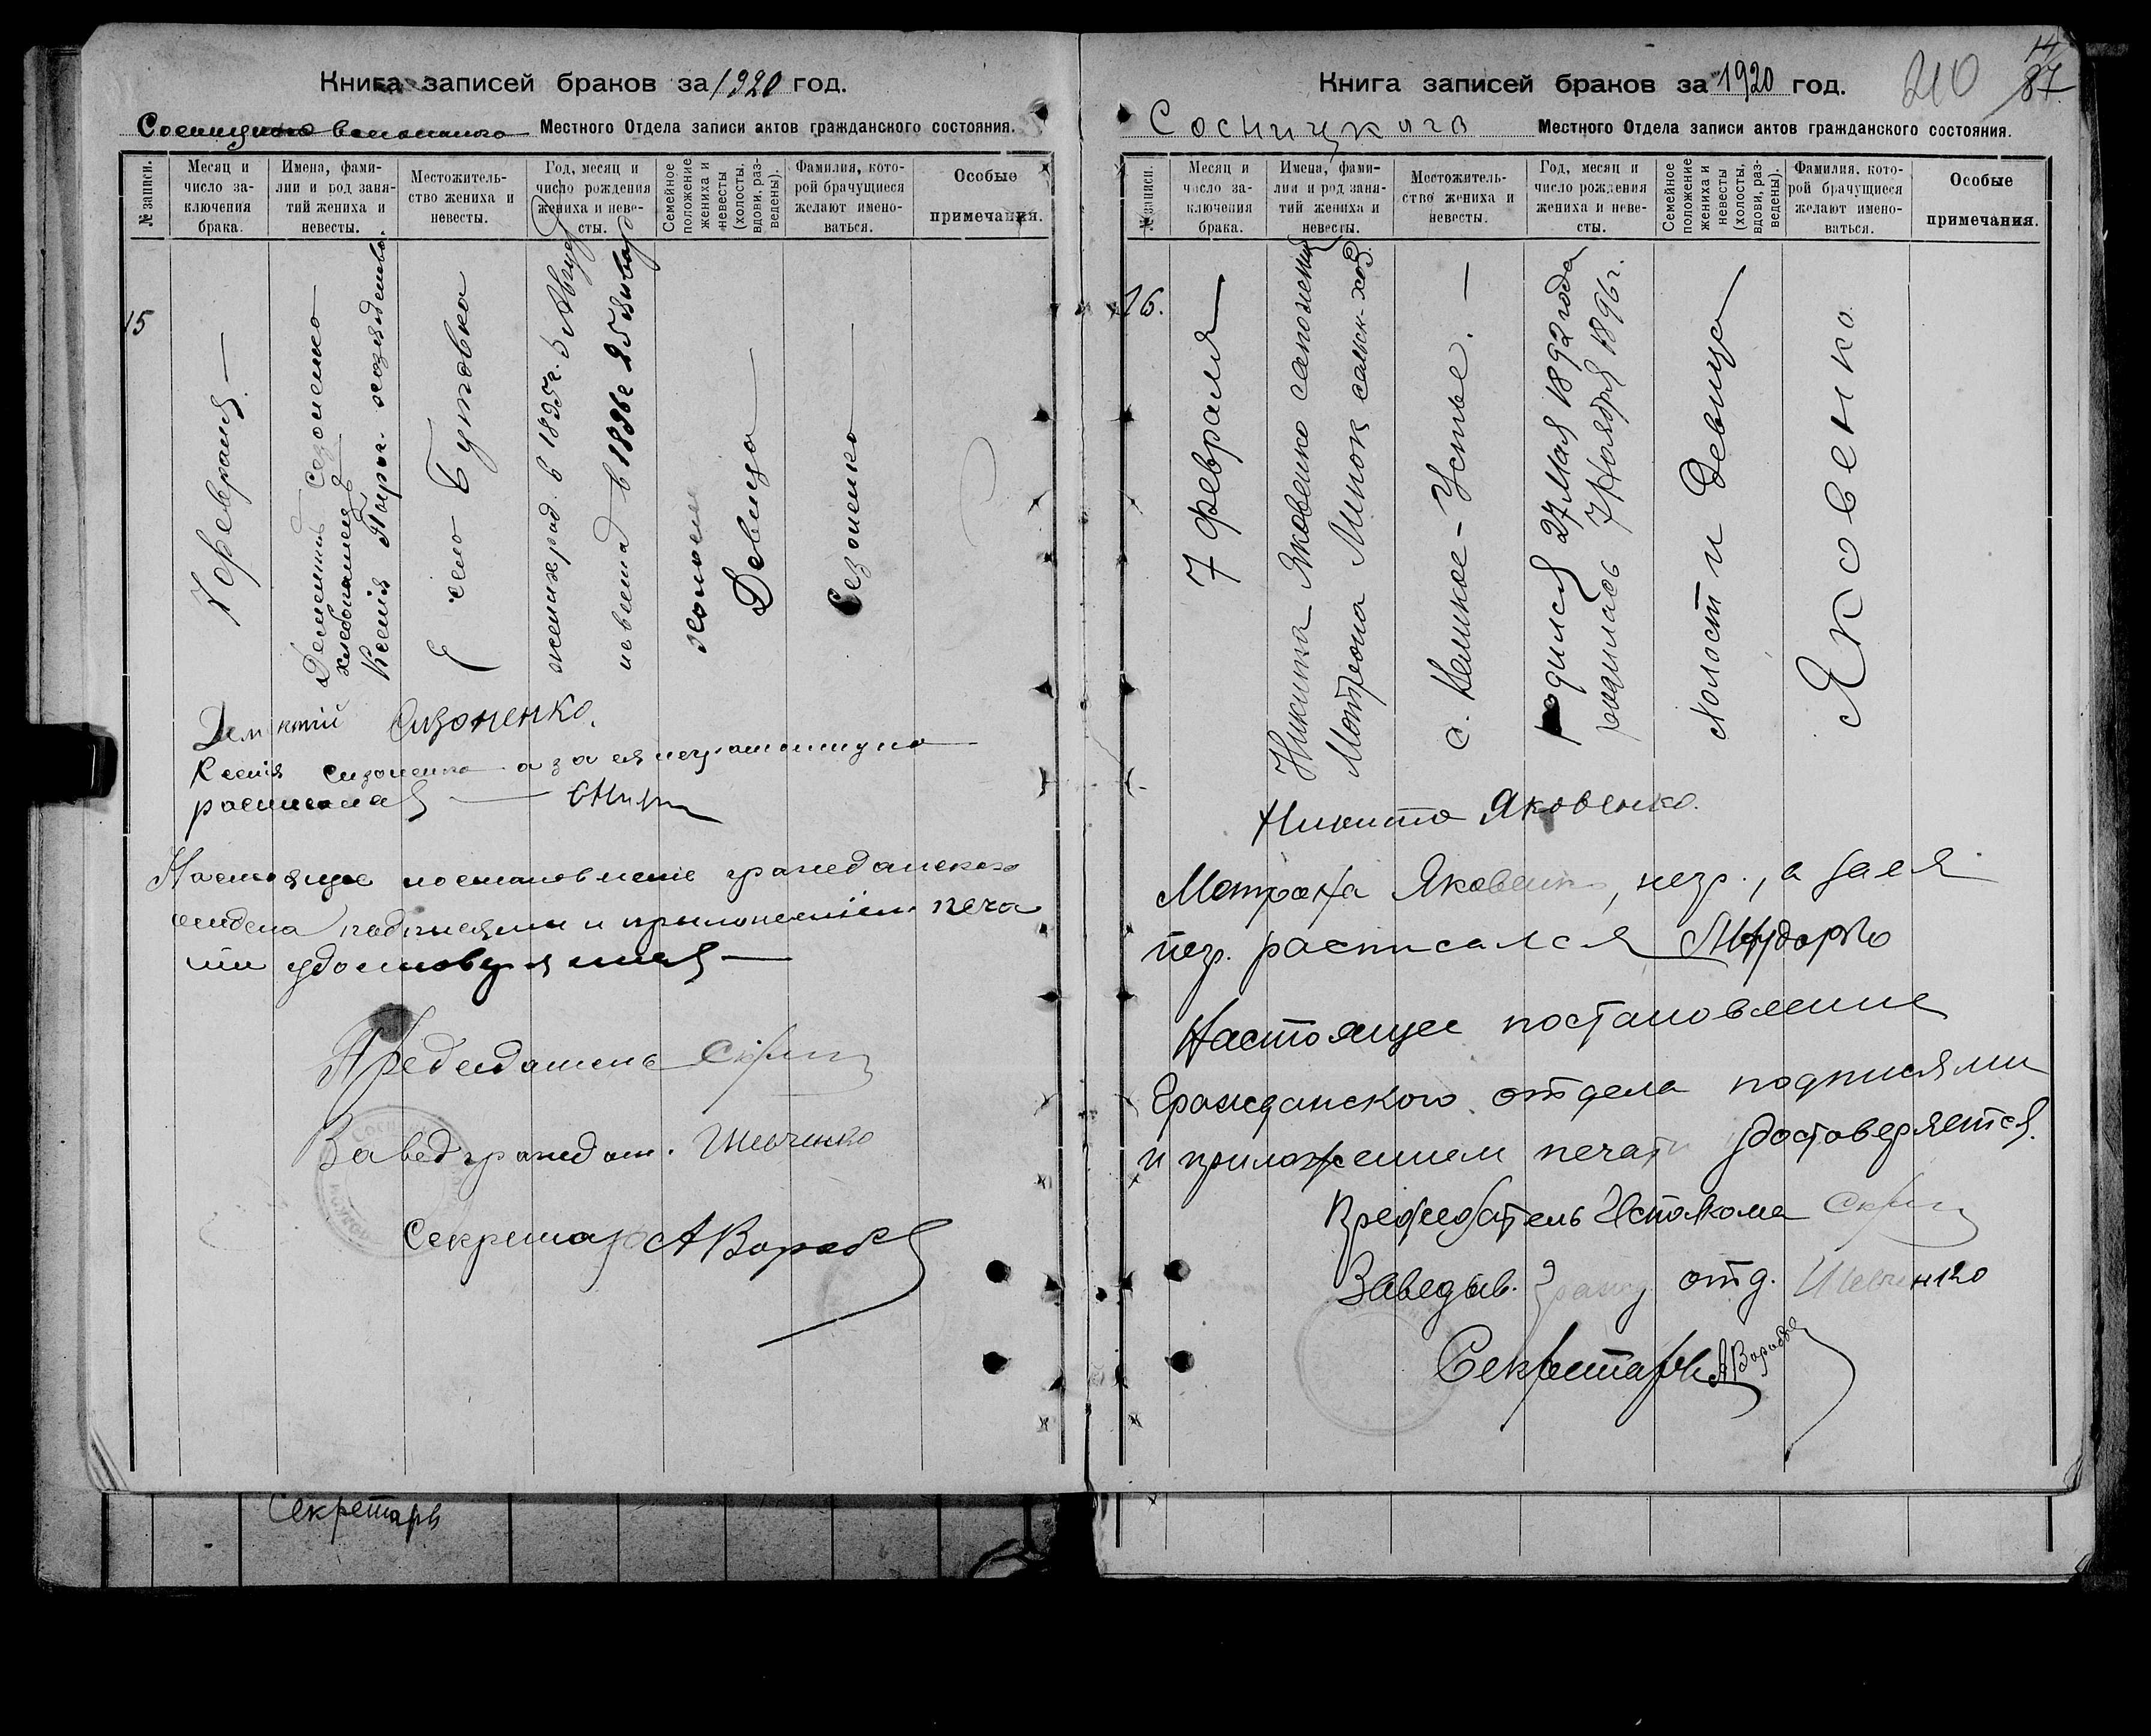 Книга записей браков за 1920 год.
Местного Отдела записи актов гражданского состояния.
№ записи.
Месяц и число за-
ключения
брака.
Имена, фами-
лии и род заня-
тий жениха и
невесты.
Местожитель-
ство жениха и
невесты.
Год, месяц и
число рождения
жениха и неве-
сты.
Семейное
положение
жениха и
невесты
(холосты,
вдови, раз-
ведены).
Фамилия, кото-
рой брачущиеся
желают имено-
ваться.
Особые
примечания.
15
Февраля
Дементий
хлебопашец
Ксения
село Бутовка
жених род. в 1895 г.
невеста в 1896 г 25 января
холост
Девица
Сезоненко
Дементий Сизоненко.
Ксения Сизоненко а за ея неграмотную
расписалася
Настоящее постановление гражданского
отдела подписями и приложением печа
ти удостоверяется
Председатель
Завед граждот. Шевченко
Секретарь
Секретарь
210
87.
Книга записей браков за 1920 год.
Сосницкаго Местного Отдела записи актов гражданского состояния.
№ записи.
Месяц и
число за-
ключения
брака.
Имена, фами-
лии и род заня-
тий жениха и
невесты.
Местожитель-
ство жениха и
невесты.
Год, месяц и
число рождения
жениха и неве-
сты.
Семейное
положение
жениха и
невесты
(холосты,
вдови, раз-
ведены).
Фамилия, кото-
рой брачущиеся
желают имено-
ваться.
Особые
примечания.
16.
7 февраля
Никита Яковенко сапожник
Мотрона Минок сельск-хоз.
с. Великое-Устье.
родился 27 Мая 1892 года
родилась 7 Ноября 1896 г.
холост и Девица
Яковенко.
Никита Яковенко.
Мотрона Яковенко, негр., а за ея
негр. расписался
Настоящее постановление
Гражданского отдела подписями
и приложением печати удостоверяется.
Председатель Исполкома
Заведыв. гражд отд. Шевченко
Секретарь